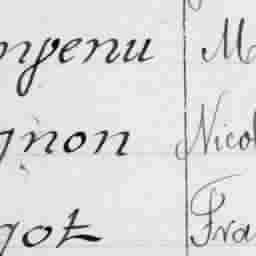 mpenu M
gnon Nicol
got Fra